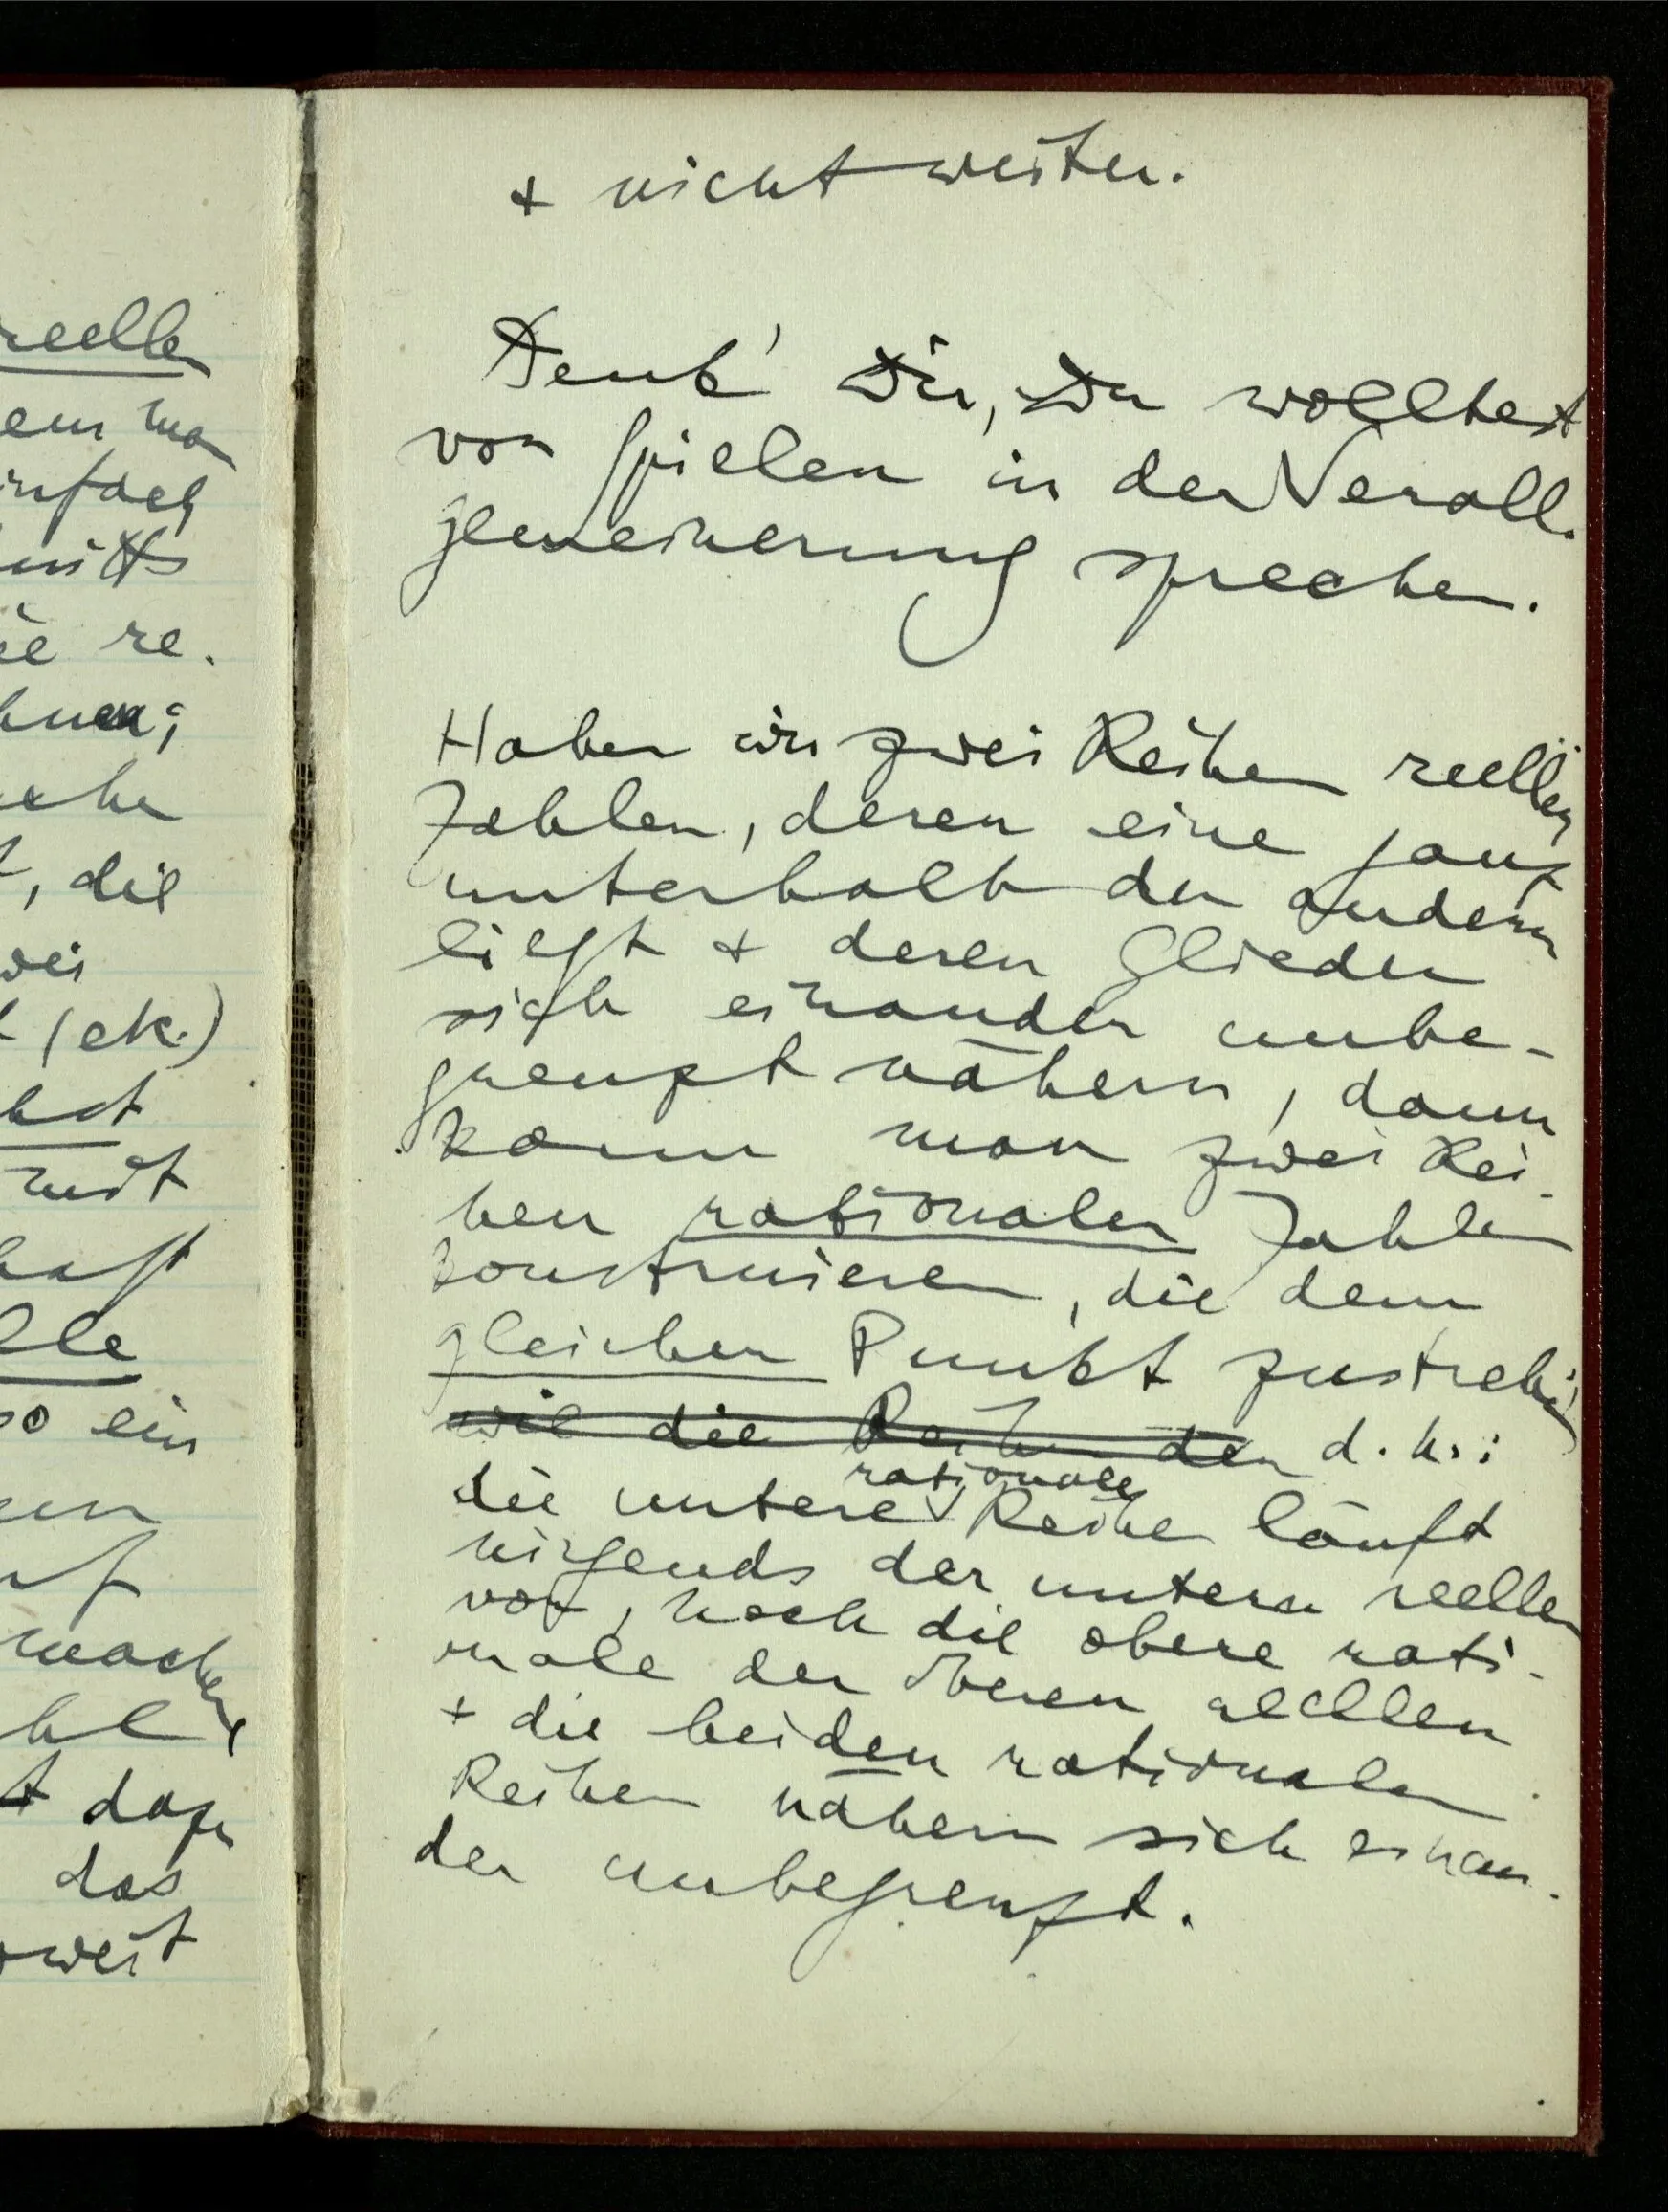 reellen
em man
infach
nitts
ie re.
hnen;
che
t, die
wei
t (etc.)
hst
nicht
haft
lle
so ein
en
uf
machen
hl
t dazu
das
oweit
+ nicht weiter.
Denk' Dir, Du wolltest
von Spielen in der Verall-
gemeinerung sprechen.
Haben wir zwei Reihen reeller
Zahlen, deren eine ganz
unterhalb der andern
liegt + deren Glieder
sich einander unbe-
grenzt nähern, dann
kann man zwei Rei-
hen rationaler Zahlen
konstruieren, die dem
gleichen Punkt zustreben
wie die Reihen der d.h.:
die untere rationale Reihe läuft
nirgends der untern reellen
vor, noch die obere ratio-
nale der oberen reellen
+ die beiden rationalen
Reihen nähern sich einan-
der unbegrenzt.